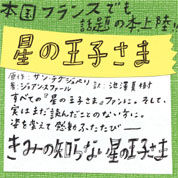 本国フランスでも
話題の本上陸!!
星の王子さま
原作:サン=テグジュペリ
著:ジョアン・スファール 訳:池澤夏樹
すべての『星の王子さま』ファンに。そして、
実はまだ読んだことのない方に。
姿を変えて感動ふたたび――
きみの知らない星の王子さま